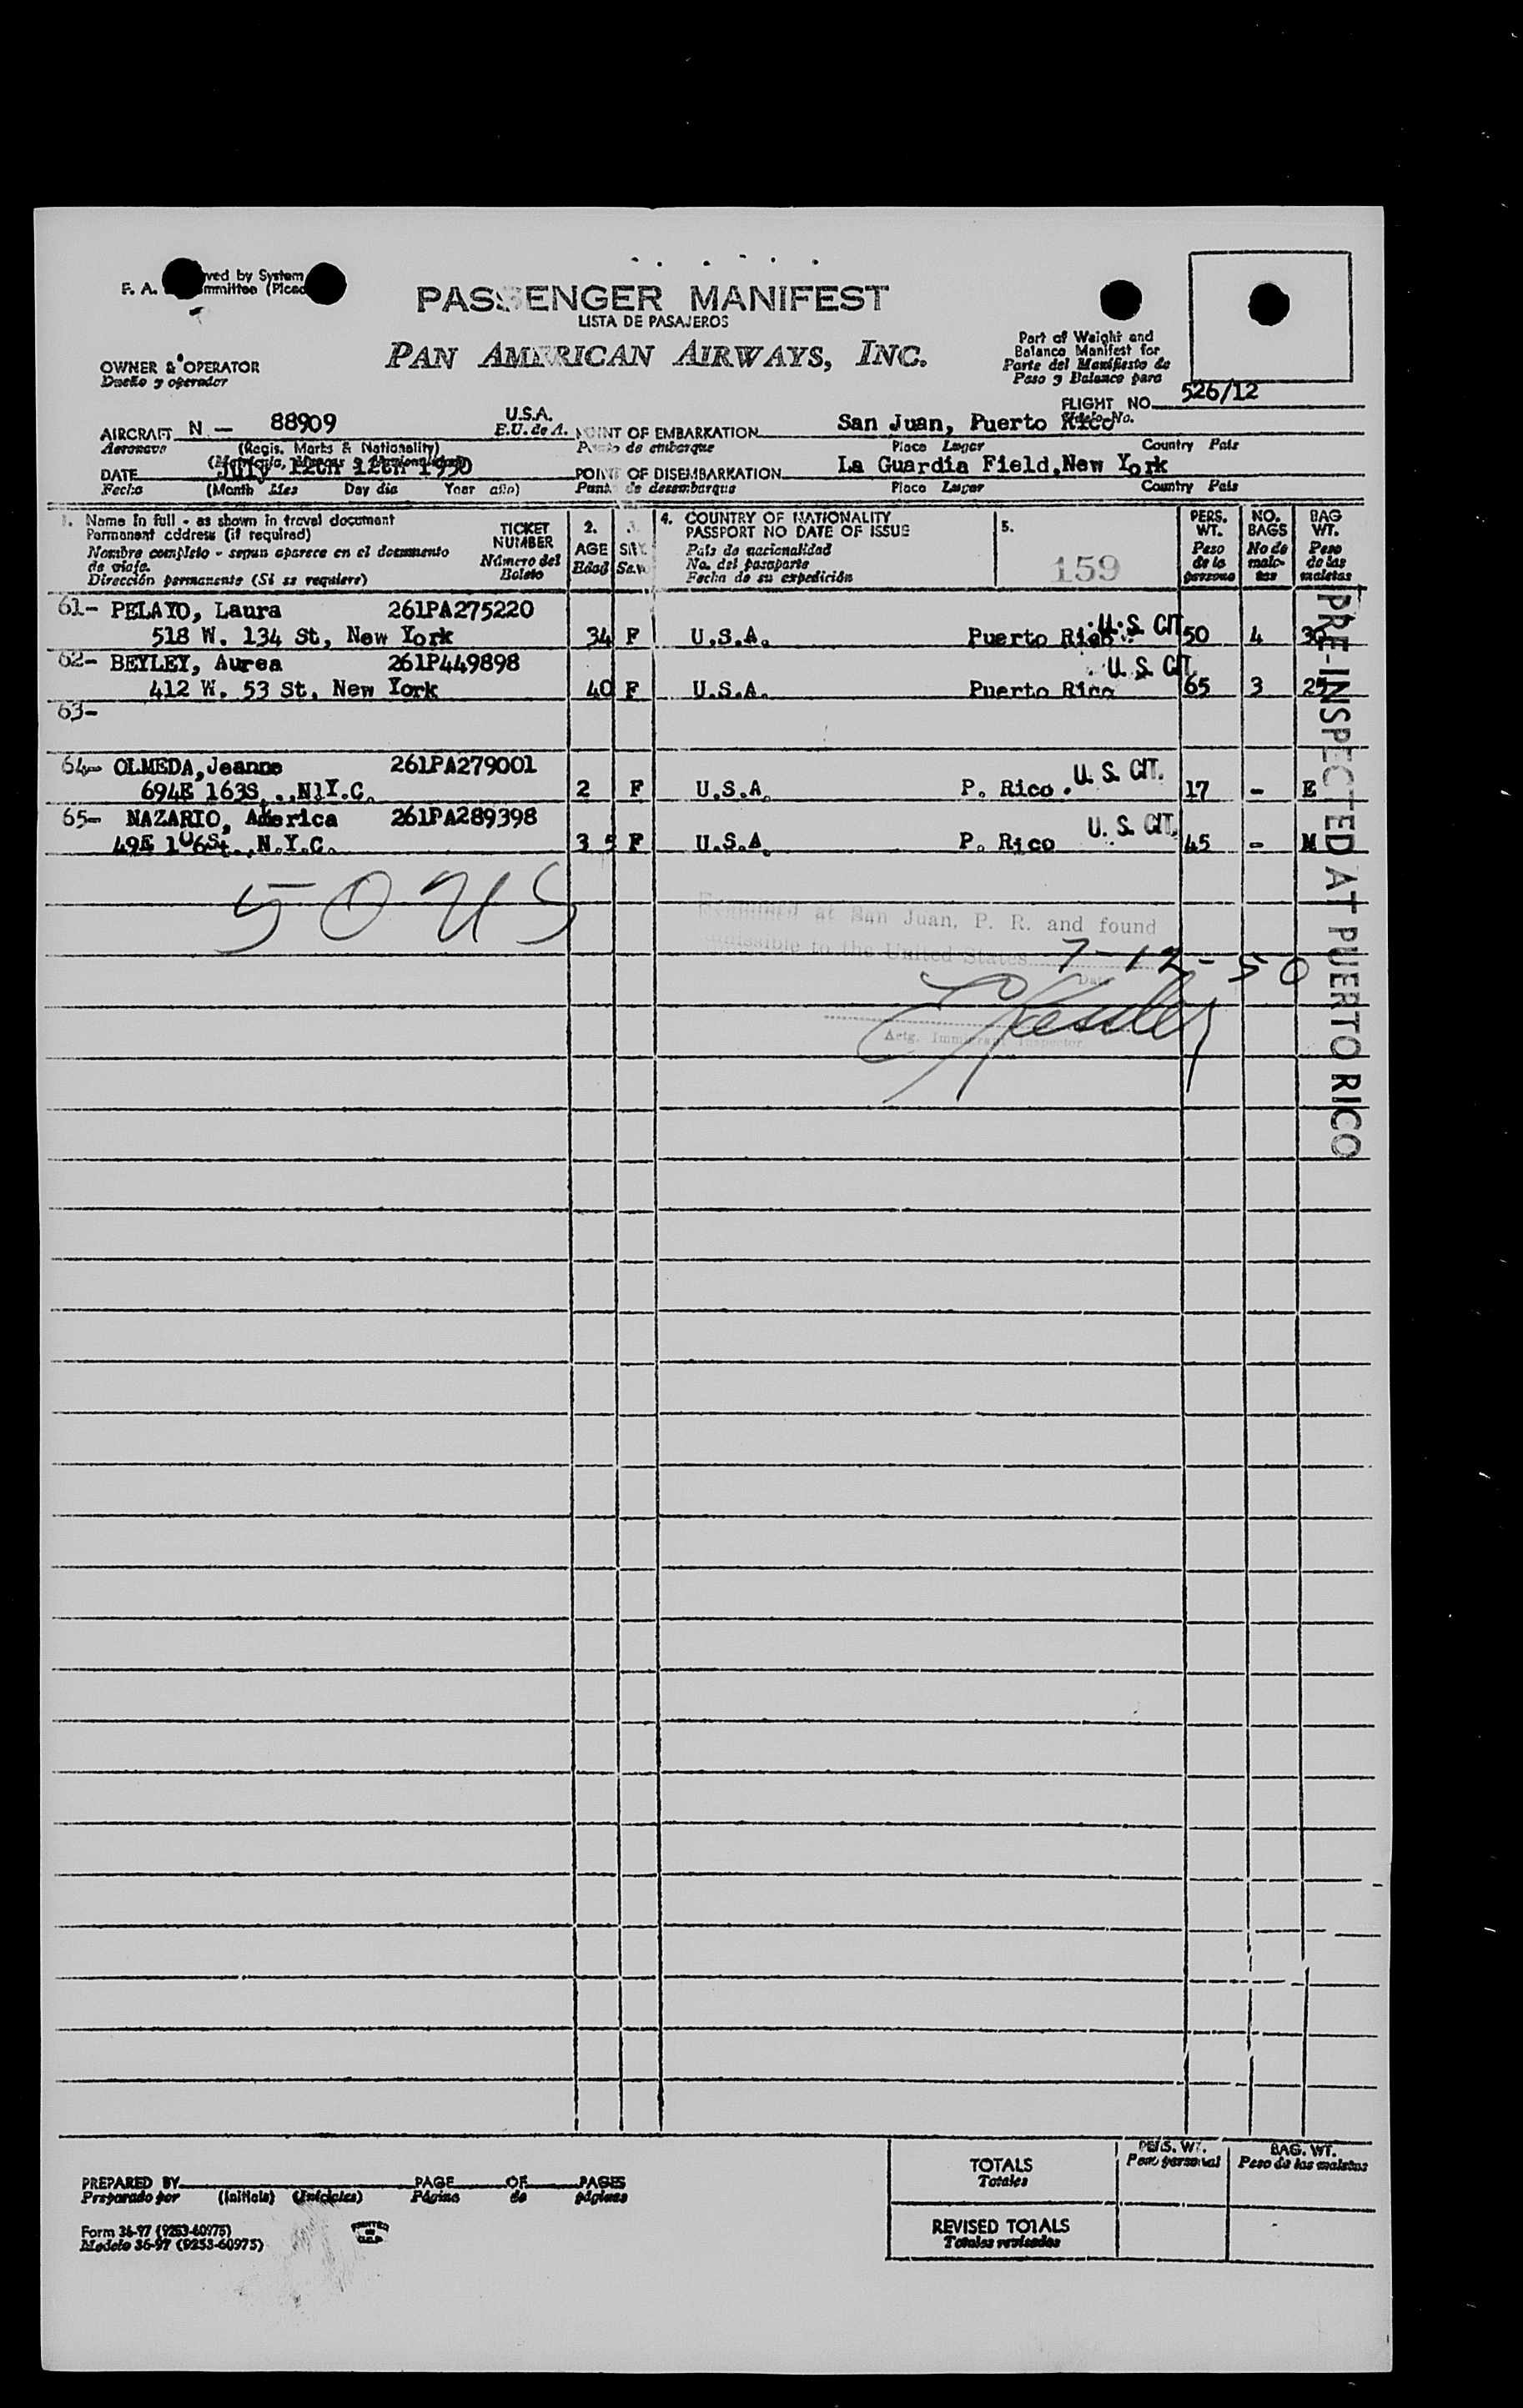 PASSENGER MANIFEST
LISTA DE PASAJEROS
PAN AMERICAN AIRWAYS, INC.
OWNER & OPERATOR
Dueño y operador
Part of Weight and
Balance Manifest for
Parte del Manifiesto de
Peso y Balance para
FLIGHT NO. 526/12
AIRCRAFT N - 88909 U.S.A.
Aeronave (Regis. Marks & Nationality) E.U. de A.
POINT OF EMBARKATION San Juan, Puerto Rico
Punto de embarque Place Lugar Country País
DATE July 12th 1950
Fecha (Month Mes Day día Year año)
POINT OF DISEMBARKATION La Guardia Field, New York
Punto de desembarque Place Lugar Country País
1. Name in full - as shown in travel document
Permanent address (if required)
Nombre completo - segun aparece en el documento
de viaje.
Dirección permanente (Si se requiere)
TICKET
NUMBER
Número del
Boleto
2.
AGE
Edad
3.
SEX
Sexo
4. COUNTRY OF NATIONALITY
PASSPORT NO DATE OF ISSUE
País de nacionalidad
No. del pasaporte
Fecha de su expedición
5.
159
PERS.
WT.
Peso
de la
persona
NO.
BAGS
No de
male-
tas
BAG
WT.
Peso
de las
maletas
61- PELAYO, Laura 261PA275220
518 W. 134 St, New York 34 F U.S.A. Puerto Rico U.S. CIT. 50 4
62- BEYLEY, Aurea 261P449898
412 W. 53 St, New York 40 F U.S.A. Puerto Rico U.S. CIT. 65 3
63-
64- OLMEDA, Jeanne 261PA279001
694E 163St., N.Y.C. 2 F U.S.A. P. Rico. U. S. CIT. 17 - E
65- NAZARIO, America 261PA289398
49E 106St., N.Y.C. 3 5 F U.S.A. P. Rico U. S. CIT. 45 - M
PRE-INSPECTED AT PUERTO RICO
50 US
Examined at San Juan, P. R. and found
admissible to the United States 7-12-50
Date
Actg. Immigrant Inspector
PREPARED BY PAGE OF PAGES
Preparado por (Initials) (Iniciales) Página de páginas
Form 36-97 (9253-60975)
Modelo 36-97 (9253-60975)
TOTALS
Totales
PERS. WT.
Peso personal
BAG. WT.
Peso de las maletas
REVISED TOTALS
Totales revisados